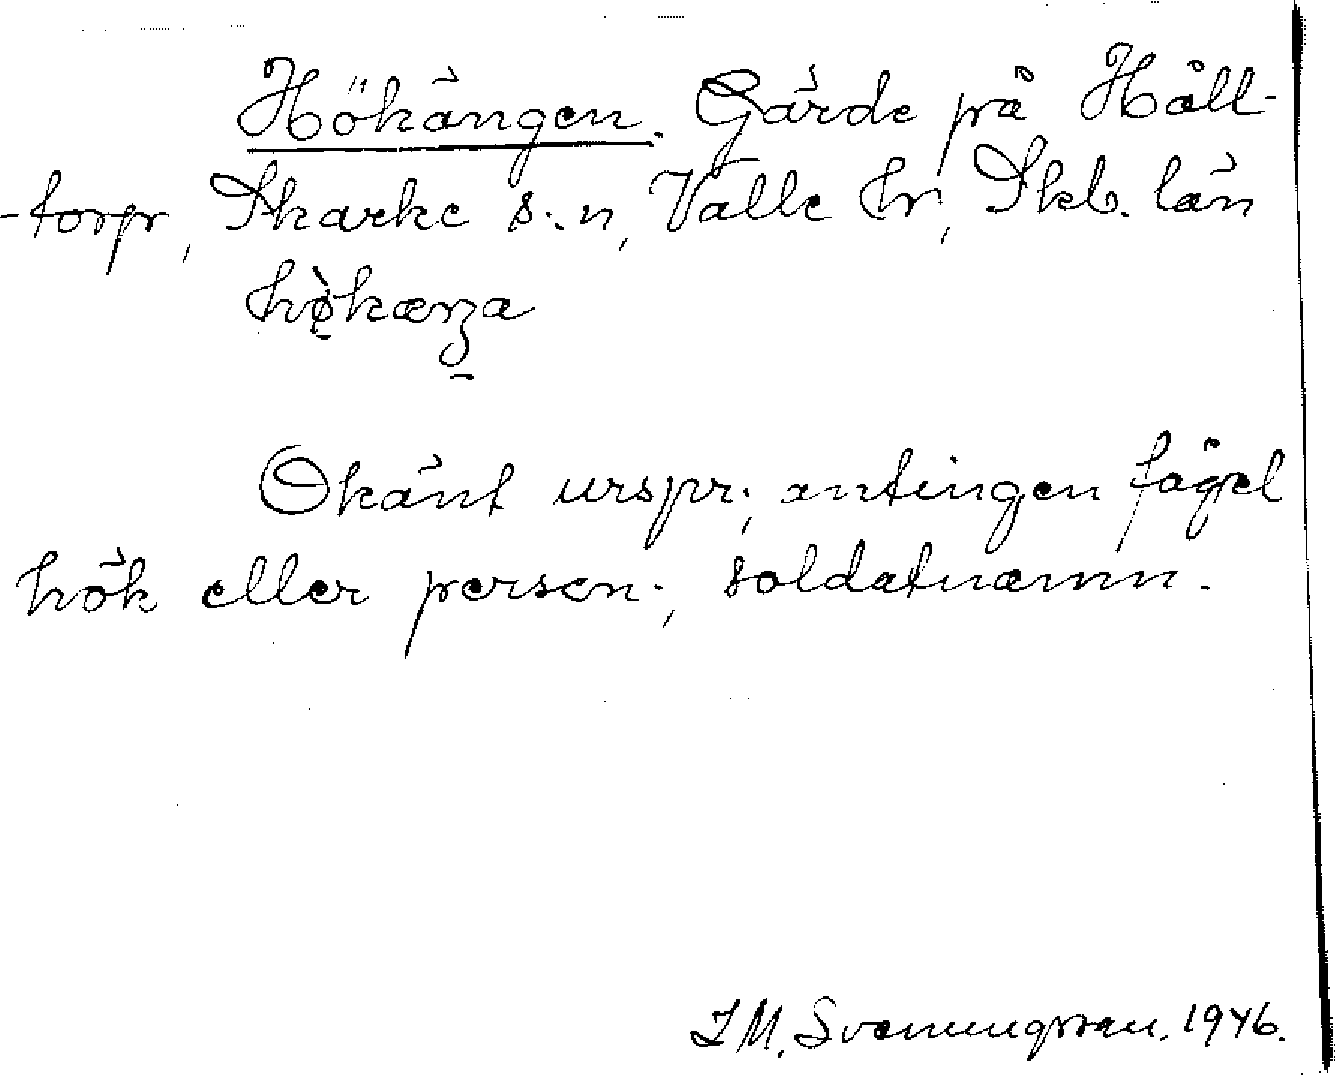 Hökängen. Gärde på Håll-
-torp, Skarke s:n, Valle hr, Skb. län
hø̀kæŋa
Okänt urspr.; antingen fågel
hök eller person-, soldatnamn.
I M. Svenningsson. 1946.